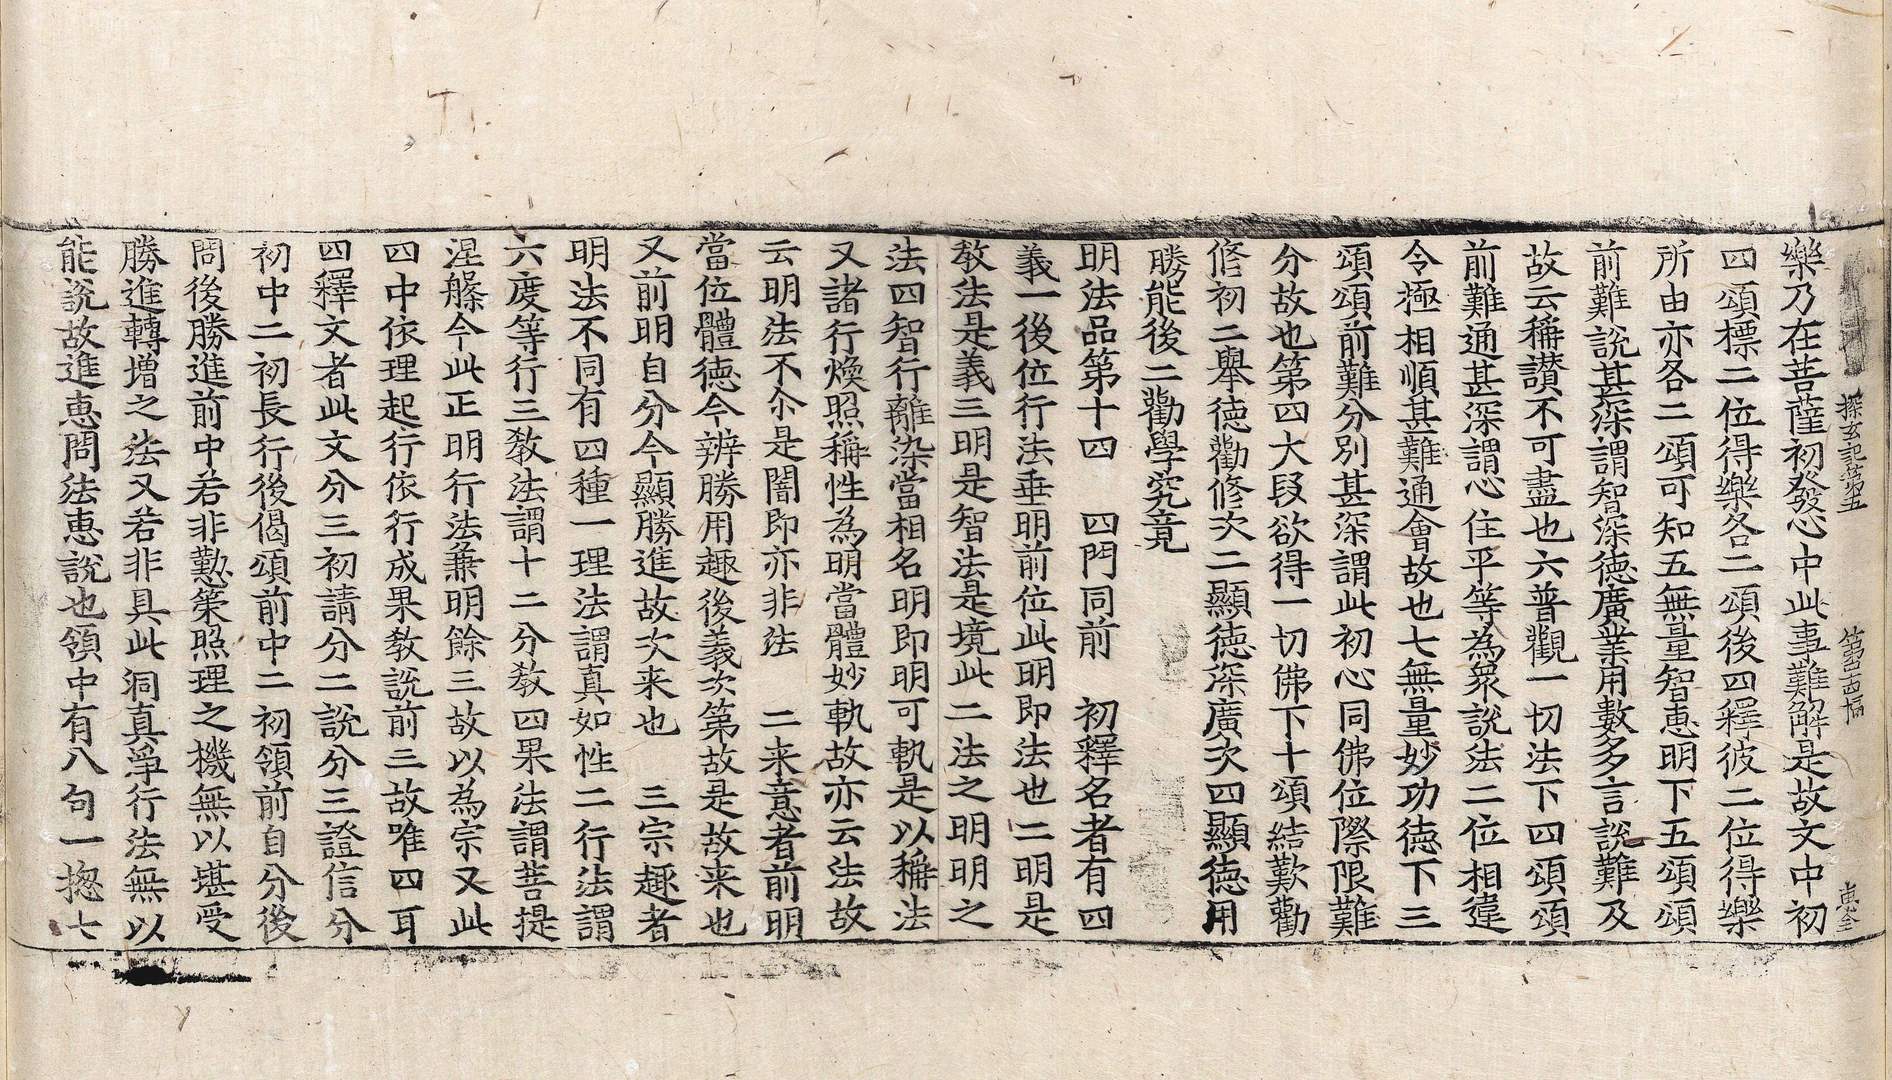 探玄記第五　第古幅　惠全
樂乃在菩薩初發心中此事難解是故文中初
四頌標二位得樂各二頌後四釋彼二位得樂
所由亦各二頌可知五無量智惠明下五頌頌
前難說甚深謂智深德廣業用數多言說難及
故云稱讃不可盡也六普觀一切法下四頌頌
前難通甚深謂心住平等為衆說法二位相違
令極相順甚難通會故也七無量妙功德下三
頌頌前難分別甚深謂此初心同佛位際限難
分故也第四大段欲得一切佛下十頌結歎勸
修初二舉德勸修次二顯德深廣次四顯德用
勝能後二勸學究竟
明法品第十四　四門同前　初釋名者有四
義一後位行法垂明前位此明即法也二明是
教法是義三明是智法是境此二法之明明之
法四智行離染當相名明即明可軌是以稱法
又諸行煥照稱性為明當體妙軌故亦云法故
云明法不尒是闇即亦非法　二来意者前明
當位體德今辨勝用趣後義次第故是故来也
又前明自分今顯勝進故次来也　三宗趣者
明法不同有四種一理法謂真如性二行法謂
六度等行三教法謂十二分教四果法謂菩提
涅槃今此正明行法兼明餘三故以為宗又此
四中依理起行依行成果教說前三故唯四耳
四釋文者此文分三初請分二說分三證信分
初中二初長行後偈頌前中二初領前自分後
問後勝進前中若非勤策照理之機無以堪受
勝進轉增之法又若非具此洞真爭行法無以
能說故進惠問法惠說也領中有八句一揔七